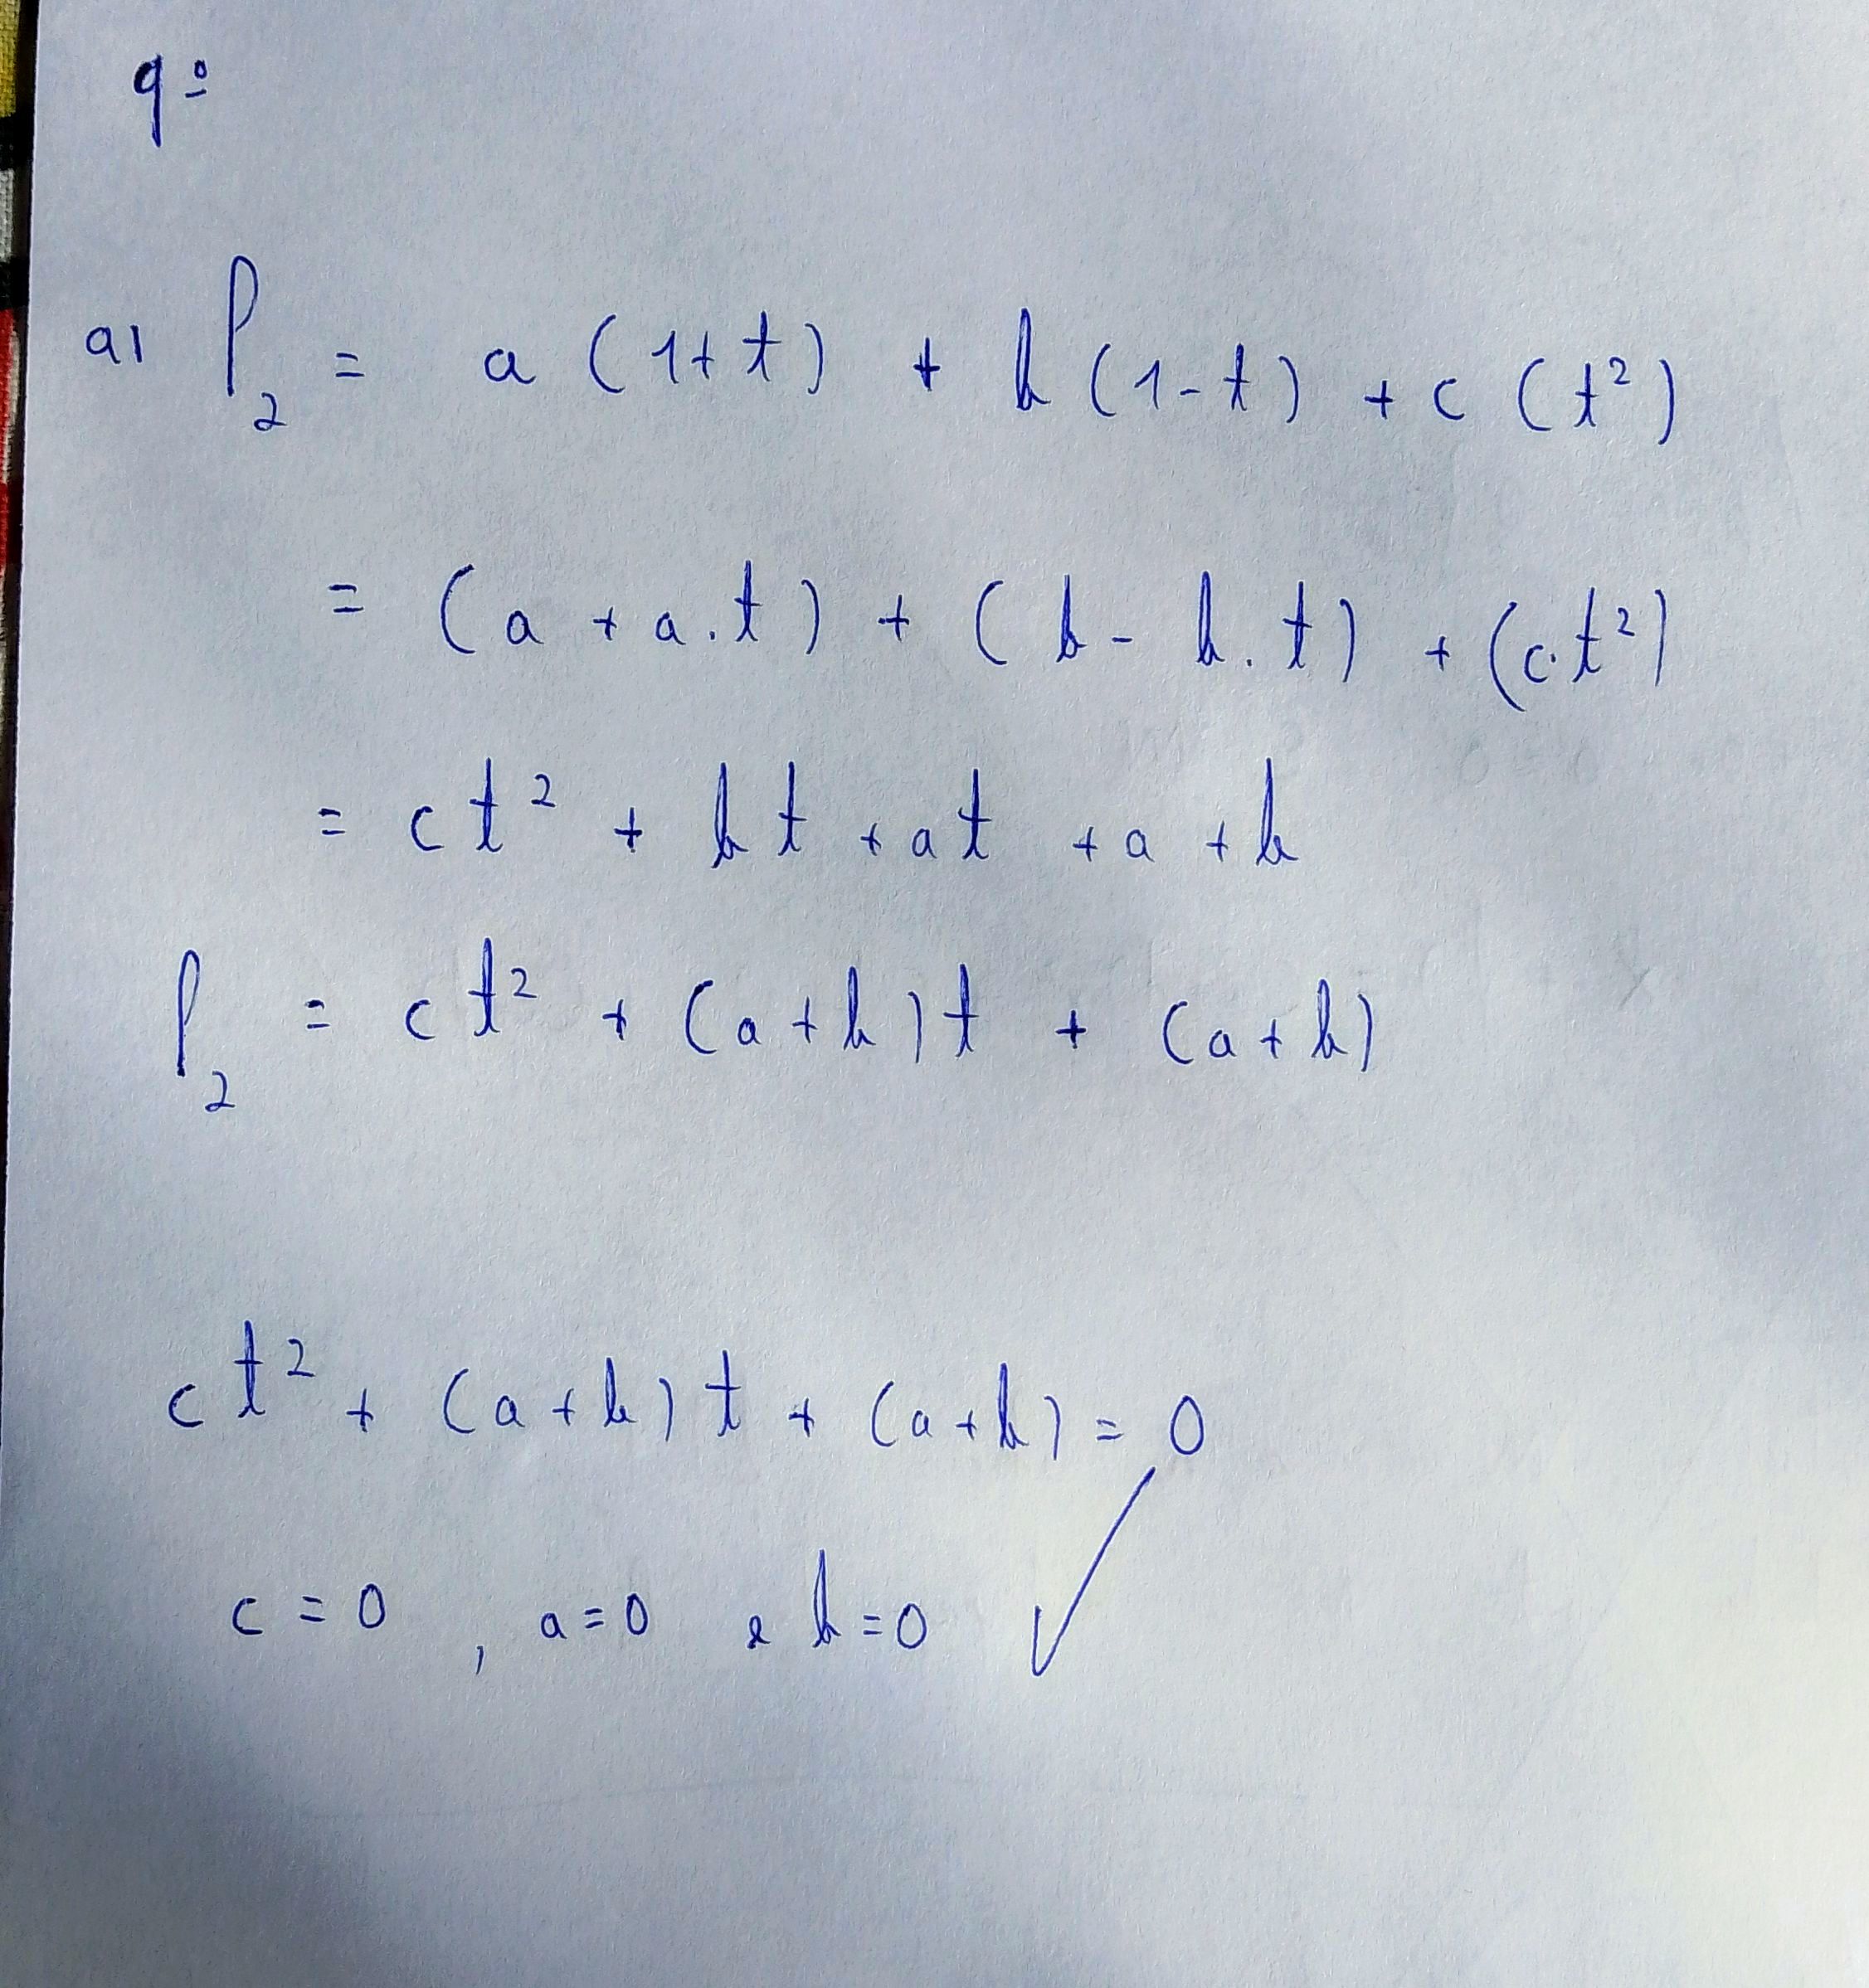 9º
a) P₂ = a (1+t) + b (1-t) + c (t²)
= (a + a.t) + (b - b.t) + (c.t²)
= ct² + bt + at + a + b
P₂ = ct² + (a+b)t + (a+b)
ct² + (a+b)t + (a+b) = 0
c = 0 , a=0 e b=0 ✓